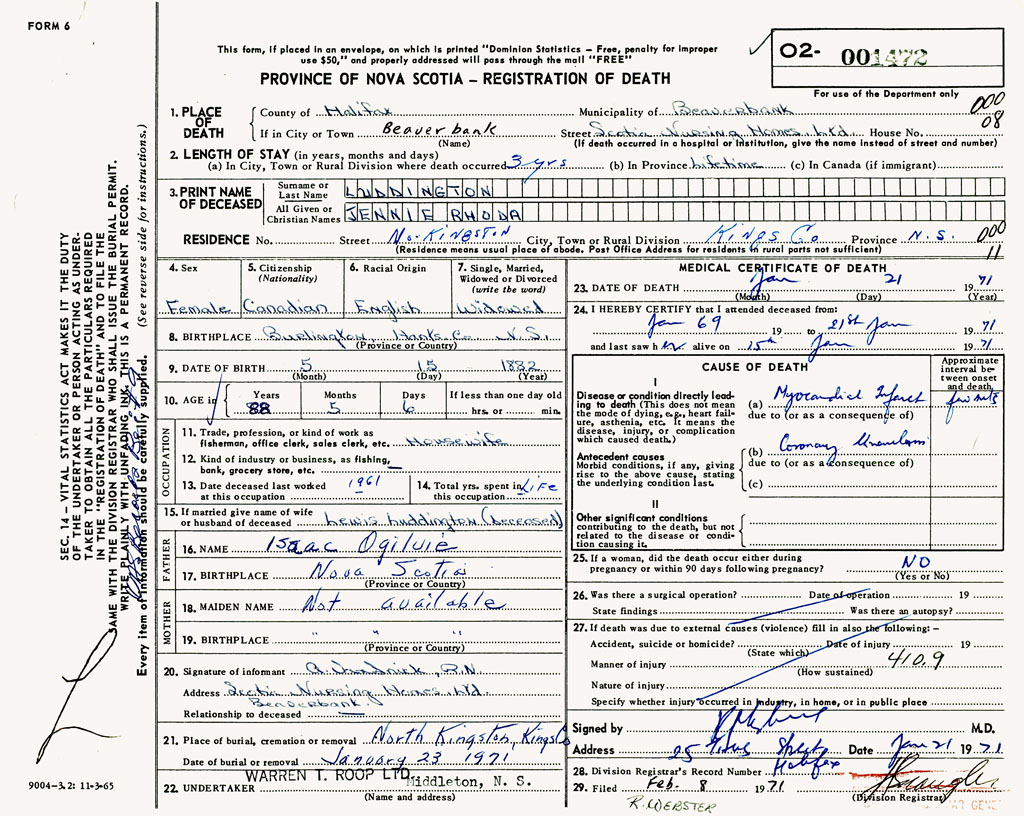 FORM 6
This form, if placed in an envelope, on which is printed "Dominion Statistics – Free, penalty for improper
use $50," and properly addressed will pass through the mail "FREE"
PROVINCE OF NOVA SCOTIA – REGISTRATION OF DEATH
O2- 001472
For use of the Department only
000
08
1. PLACE OF DEATH
County of Halifax Municipality of Beaverbank
If in City or Town Beaver bank Street Scotia Nursing Homes, Ltd. House No.
(Name) (If death occurred in a hospital or Institution, give the name instead of street and number)
2. LENGTH OF STAY (in years, months and days)
(a) In City, Town or Rural Division where death occurred 3 yrs (b) In Province Lifetime (c) In Canada (if immigrant)
3. PRINT NAME OF DECEASED
Surname or Last Name LUDDINGTON
All Given or Christian Names JENNIE RHODA
RESIDENCE No. Street No. Kingston City, Town or Rural Division Kings Co Province N.S.
000
11
(Residence means usual place of abode. Post Office Address for residents in rural parts not sufficient)
4. Sex Female
5. Citizenship (Nationality) Canadian
6. Racial Origin English
7. Single, Married, Widowed or Divorced (write the word) Widowed
8. BIRTHPLACE Burlington Hants Co. N.S.
(Province or Country)
9. DATE OF BIRTH 5 15 1882
(Month) (Day) (Year)
10. AGE in Years Months Days If less than one day old
88 5 6 hrs. or min.
OCCUPATION
11. Trade, profession, or kind of work as
fisherman, office clerk, sales clerk, etc. Housewife
12. Kind of industry or business, as fishing,
bank, grocery store, etc. —
13. Date deceased last worked
at this occupation 1961
14. Total yrs. spent in
this occupation Life
15. If married give name of wife
or husband of deceased Lewis Luddington (Deceased)
FATHER
16. NAME Isaac Ogilvie
17. BIRTHPLACE Nova Scotia
(Province or Country)
MOTHER
18. MAIDEN NAME Not available
19. BIRTHPLACE " " "
(Province or Country)
20. Signature of informant R.N.
Address Scotia Nursing Homes Ltd.
Beaverbank.
Relationship to deceased —
21. Place of burial, cremation or removal North Kingston, Kings Co
Date of burial or removal January 23 1971
22. UNDERTAKER WARREN T. ROOP LTD. Middleton, N. S.
(Name and address)
MEDICAL CERTIFICATE OF DEATH
23. DATE OF DEATH Jan 21 1971
(Month) (Day) (Year)
24. I HEREBY CERTIFY that I attended deceased from:
Jan 69 19 to 21st Jan 1971
and last saw her alive on 15th Jan 1971
CAUSE OF DEATH
Approximate interval between onset and death
I
Disease or condition directly leading to death (This does not mean
the mode of dying, e.g., heart failure, asthenia, etc. It means the
disease, injury, or complication
which caused death.)
(a) Myocardial Infarct few mts
due to (or as a consequence of)
Antecedent causes
Morbid conditions, if any, giving
rise to the above cause, stating
the underlying condition last.
(b) Coronary
due to (or as a consequence of)
(c)
II
Other significant conditions
contributing to the death, but not
related to the disease or condition causing it.
25. If a woman, did the death occur either during
pregnancy or within 90 days following pregnancy? NO
(Yes or No)
26. Was there a surgical operation? Date of operation 19
State findings Was there an autopsy?
27. If death was due to external causes (violence) fill in also the following: –
Accident, suicide or homicide? Date of injury 19
(State which)
Manner of injury 410.9
(How sustained)
Nature of injury
Specify whether injury occurred in Industry, in home, or in public place
Signed by M.D.
Address 25 Street Date Jan 21 1971
Halifax
28. Division Registrar's Record Number
29. Filed Feb. 8 1971
(Division Registrar)
R. WEBSTER
SEC. 14 – VITAL STATISTICS ACT MAKES IT THE DUTY
OF THE UNDERTAKER OR PERSON ACTING AS UNDER-
TAKER TO OBTAIN ALL THE PARTICULARS REQUIRED
IN THE "REGISTRATION OF DEATH" AND TO FILE THE
SAME WITH THE DIVISION REGISTRAR WHO SHALL ISSUE THE BURIAL PERMIT.
WRITE PLAINLY WITH UNFADING INK. THIS IS A PERMANENT RECORD.
Every item of information should be carefully supplied. (See reverse side for instructions.)
9004–3.2: 11-3-65